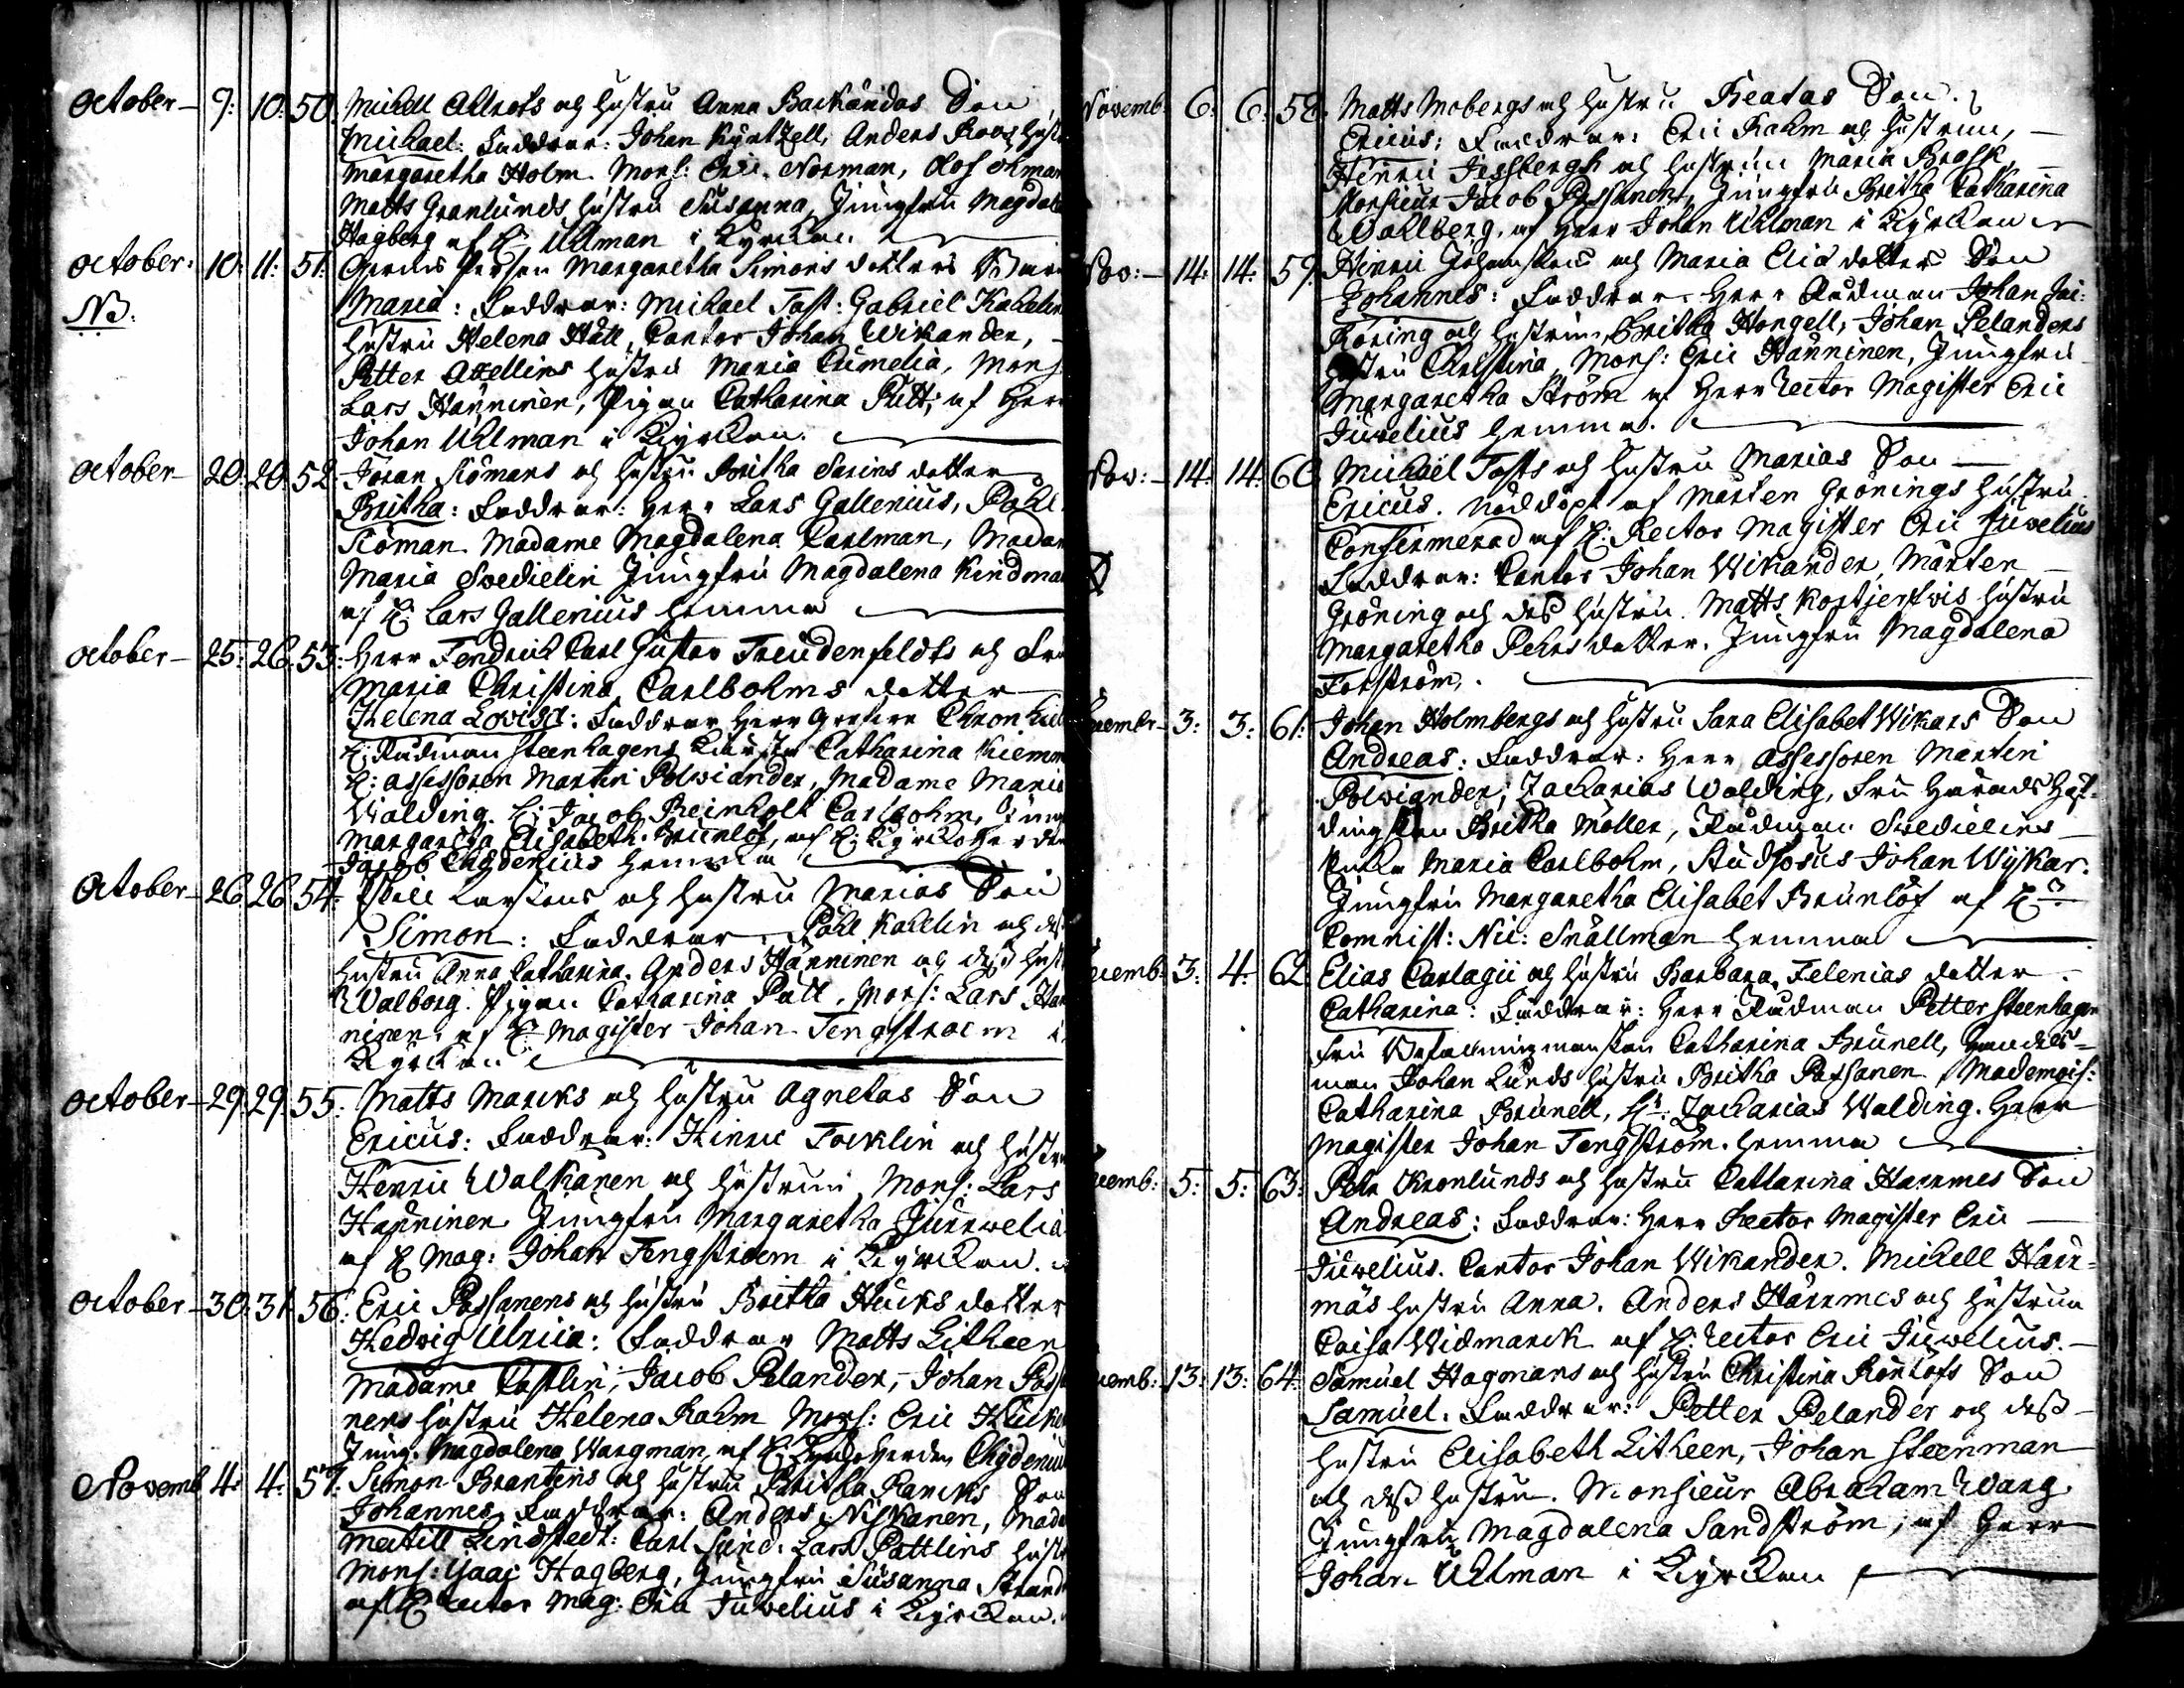 October – 9: 10: 50. Michell Allrots och hustru Anna Backändas Son
Michael: Faddrar: Johan Kyntzell, Anders Roos hust
Margaretha Holm. Mons: Eric Norman, Olof Ohman
Matts Granlunds hustru Susanna, Jungfru Magdale
Hagberg af H: Uhlman i Kyrckan
October: 10: 11: 51: Margaretha Simons dotters
NB:
Maria: Faddrar: Michael Tast: Gabriel Kahelin
hustru Helena Häll, Cantor Johan Wikander, –
Petter Axellins hustru Maria Cumelia, Mons
Lars Hänninen, Pigan Catharina Pütt; af Herr
Johan Uhlman i Kyrckan.
October – 20: 20: 52. Jöran Siömans och hustru Britha Sarins dotter
Britha: Faddrar: Herr Lars Gallenius, Påhl
Siöman. Madame Magdalena Carlman, Madam
Maria Svedielin Jungfru Magdalena Kindma
af H: Lars Gallenius hemma
October – 25: 26: 53: Herr Fendrich Carl Gustav Freudenfeldts och Fru
Maria Christina Carlbohms dotter
Helena Lovisa: Faddrar Herr
H: Rådman Steenhagens Catharina Kiemm
H: Assessoren Martin Polviander, Madame Maria
Walding. H: Jacob Reinholt Carlbohm, Jung
Margareta Elisabeth Brunlöf, af H: Kyrckoherden
Jacob Chydenius hemma
October – 26: 26: 54: Larssons och hustru Marias Son
Simon: Faddrar. Påhl Kahelin och des
hustru Anna Catharina. Anders Hänninen och dess hust
Walborg. Pigan Catharina Pütt. Mons: Lars Hän
ninen. af H: Magister Johan Tengstroem i
Kyrckan
October – 29: 29: 55: Matts Marcks och hustru Agnetas Son
Ericus: Faddrar: Hinric Forklin och hustru
Henric Walkanen och hustrun Mons: Lars
Hänninen Jungfru Margaretha Juuwelia
af H Mag: Johan Tengstroem i Kyrckan.
October – 30: 31: 56: Eric Passanens och hustru Britha Hucks dotter
Hedvig Ulrica: Faddrar Matts Litheen
Madame Castlin, Jacob Pelander, Johan Passa
nens hustru Helena Rahm Mons: Eric Hucke
Jung. Magdalena Wargman af H: Kyrckoherden Chydenius
Novemb 4: 4: 57: Simon Brantins och hustru Britha Rancks Son
Johannes, Faddrar: Anders Niskanen, Mada
Metill Lindstedt: Carl Sund. Lars Pattlins hustr
Mons: Isaac Hagberg, Jungfru Susanna Strand
af H Rector Mag: Eric Juvelius i Kyrckan.
Novemb. 6: 6: 58: Matts Mobergs och hustru Beatas Son.
Ericus: Faddrar: Eric Rahm och hustrun, –
Hinric Forssbergh och hustrun Maria Brask, –
Monsieur Jacob Passanen, Jungfru Britha Catharina
Wahlberg. af Herr Johan Uhlman i Kyrckan
Nov: – 14: 14: 59: Hinric Johanssons och Maria Eliædotters Son
Johannes: Faddrar. Herr Rådman Johan Jac:
Roring och hustrun Britha Hongell, Johan Pelanders
hustru Christina, Mons: Eric Hänninen, Jungfru
Margaretha Ström af Herr Rector Magister Eric
Juvelius hemma.
Nov: – 14: 14: 60. Michaël Tasts och hustru Marias Son –
Ericus. Nöddöpt af Mårten Grönings hustru
Confirmerad af H: Rector Magister Eric Juvelius
Faddrar: Cantor Johan Wikander, Mårten –
Gröning och des hustru. Matts Kortjerfvis hustru
Margaretha Pehrsdotter. Jungfru Magdalena
Forsström.
cember – 3: 3: 61: Johan Holmbergs och hustru Sara Elisabet Wikars Son
Andreas: Faddrar: Herr Assessoren Martin
Polviander; Zacharias Walding, Fru Häradshöf-
dingskan Britha Möller, Rådman Svedielins
Maria Carlbohm, Studiosus Johan Wijkar.
Jungfru Margaretha Elisabet Brunlöf af H:
Comnist: Nic: Snällman hemma
cemb: 3: 4: 62. Elias Carlagii och hustru Barbara Felenias dotter.
Catharina: Faddrar: Herr Rådman Petter Steenhagen
Fru Befallningmanskan Catharina Brunell, Handels-
man Johan Lunds hustru Britha Passanen. Mademois:
Catharina Brunell, Hr: Zacharias Walding. Herr
Magister Johan Tengström. hemma
cemb: 5: 5: 63: Pehr Kronlunds och hustru Catharina Harrmes Son
Andreas: Faddrar: Herr Rector Magister Eric –
Juvelius. Cantor Johan Wikander. Michell Harr-
mäs hustru Anna. Anders Härrmes och hustrun
Caisa Widmarck af H: Rector Eric Juvelius. –
cemb: 13: 13: 64: Samuel Hagmans och hustru Christina Rönlöfs Son
Samuel. Faddrar: Petter Pelander och dess –
hustru Elisabeth Litheen, Johan Steenman
och dess hustru. Monsieur Abraham Warg.
Jungfru Magdalena Sandström; af Herr
Johan Uhlman i Kyrckan